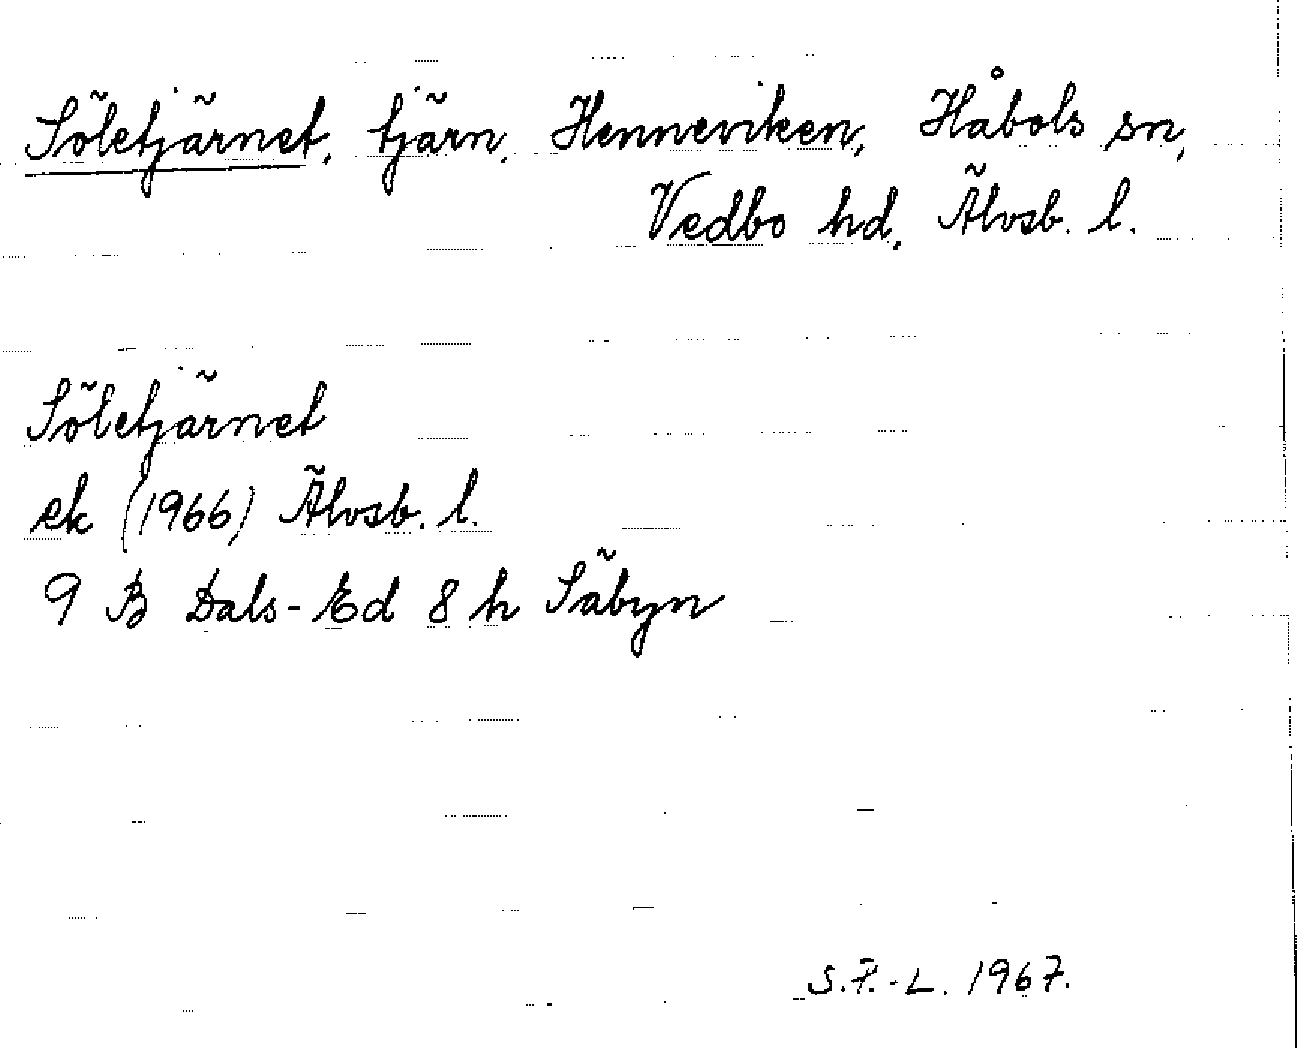 Söletjärnet, tjärn, Henneviken, Håbols sn,
Vedbo hd, Älvsb. l.
Söletjärnet
ek (1966) Älvsb. l.
9 B Dals-Ed 8 h Säbyn
S.F.-L. 1967.